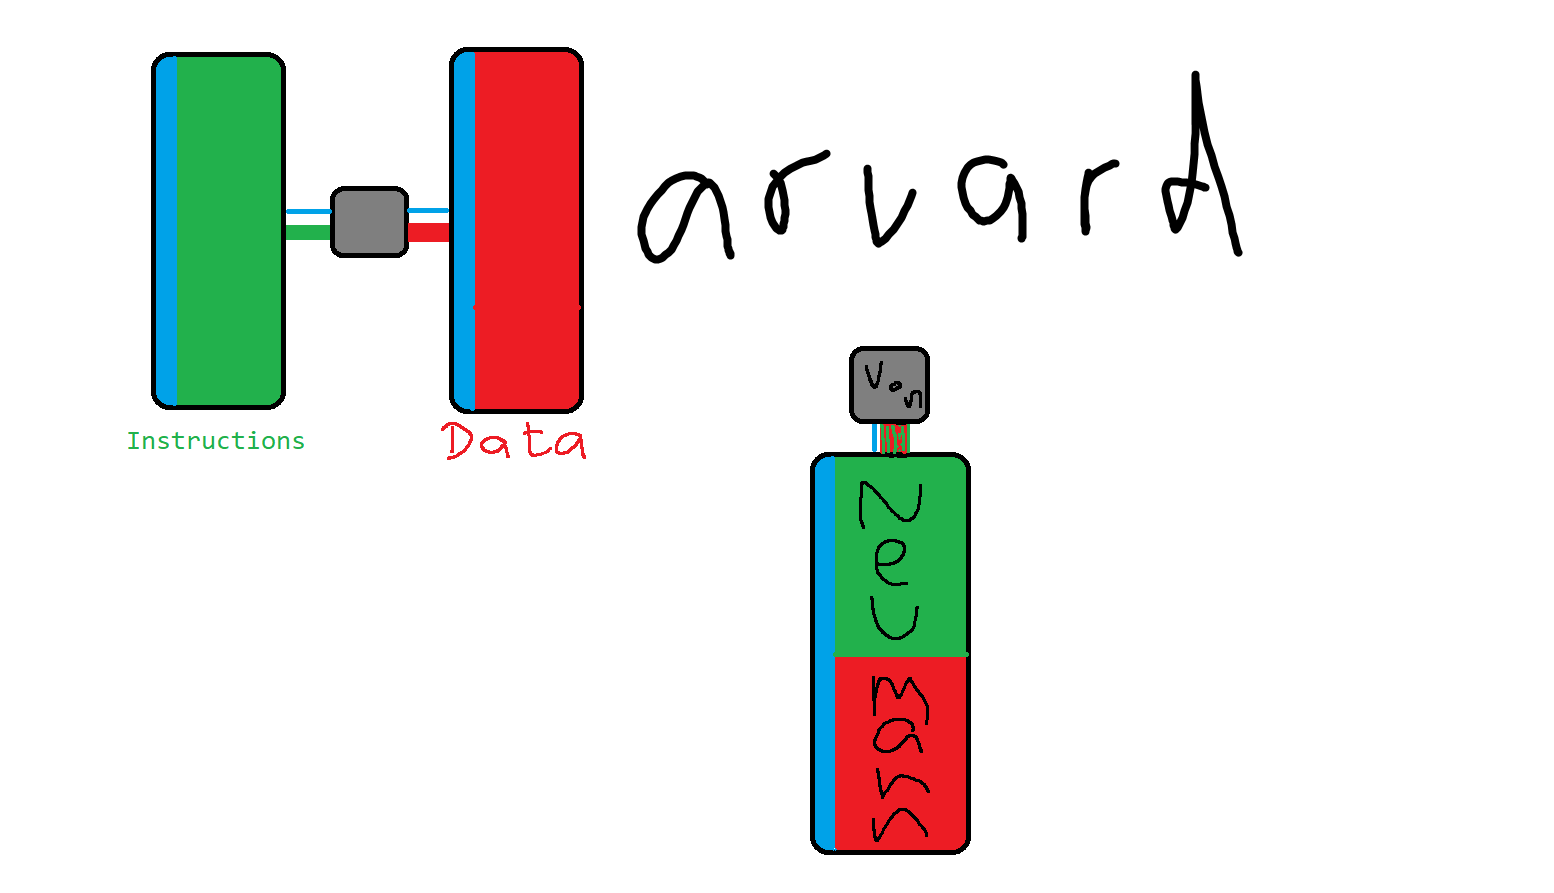 Harvard
Instructions
Data
Von
Neumann